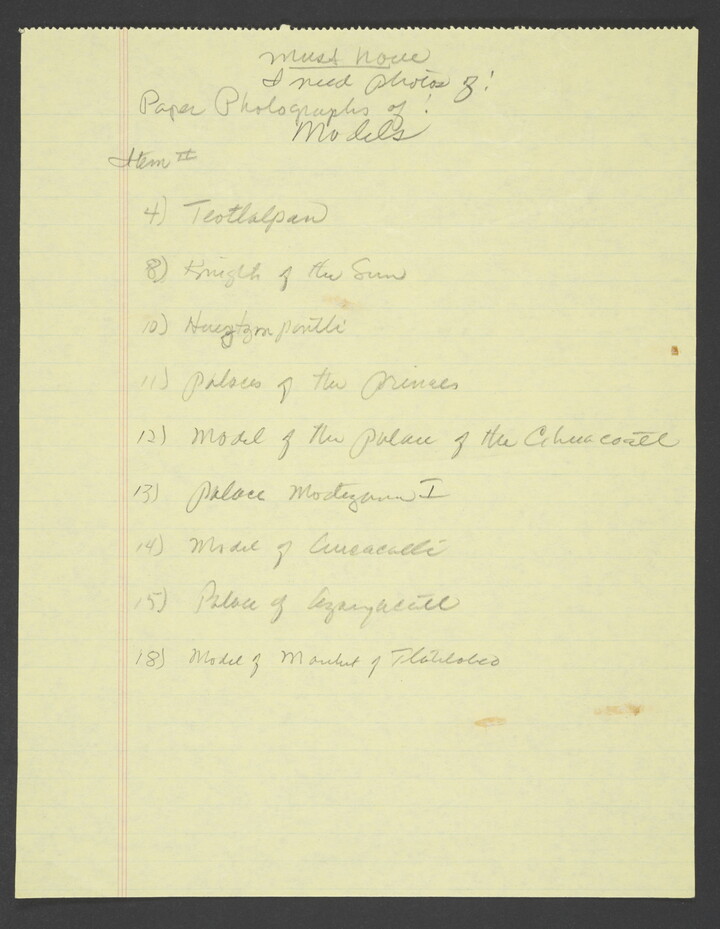 Must have
I need photos of!
Paper Photographs of!
Models
Item #
4) Teotlalpan
8) Knigth of the Sun
10) Hueytzompantli
11) Palaces of the princes
12) Model of the Palace of the Cihuacoatl
13) Palace Moctezuma I
14) Model of Cuicacalli
15) Palace of Axayacatl
18) Model of Market of Tlatelolco